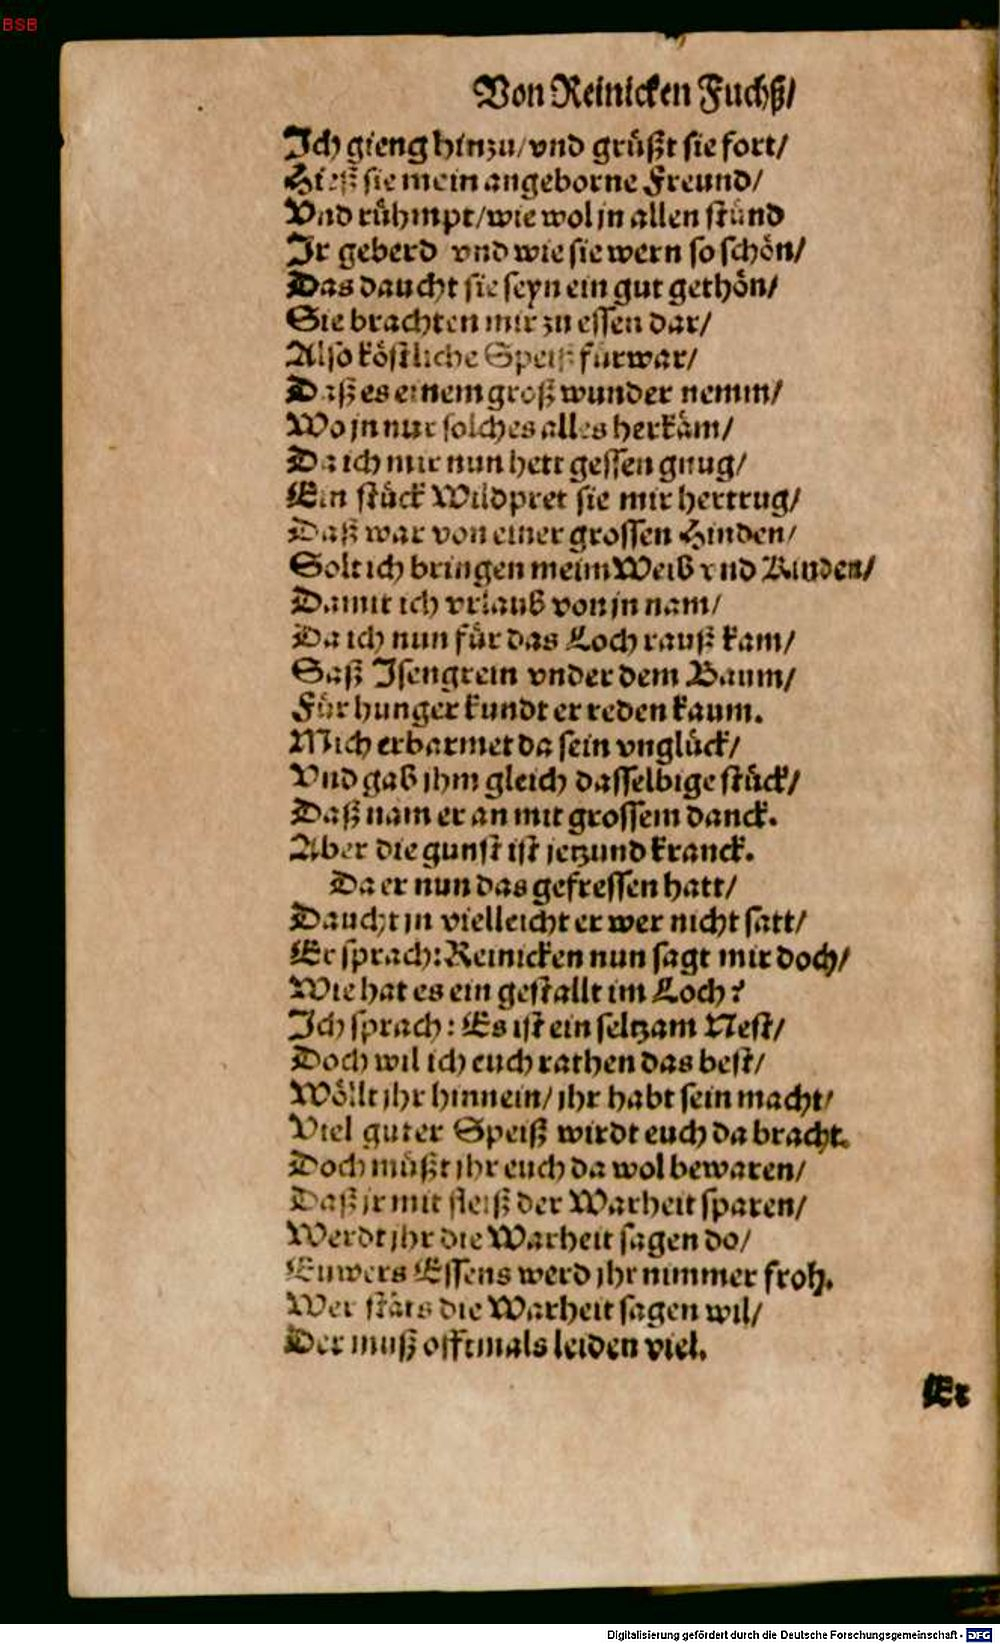 BSB
Von Reinicken Fuchß/
Ich gieng hinzu/ vnd grüßt sie fort/
Hieß sie mein angeborne Freund/
Vnd rühmpt/ wie wol jn allen stünd
Ir geberd vnd wie sie wern so schön/
Das daucht sie seyn ein gut gethön/
Sie brachten mir zu essen dar/
Also köstliche Speiß fürwar/
Daß es einem groß wunder nemm/
Wo jn nur solches alles herkäm/
Da ich mir nun hett gessen gnug/
Ein stück Wildpret sie mir hertrug/
Daß war von einer grossen Hinden/
Solt ich bringen meim Weib vnd Kinden/
Damit ich vrlaub von jn nam/
Da ich nun für das Loch rauß kam/
Saß Isengrein vnder dem Baum/
Für hunger kundt er reden kaum.
Mich erbarmet da sein vnglück/
Vnd gab jhm gleich dasselbige stück/
Daß nam er an mit grossem danck.
Aber die gunst ist jetzund kranck.
Da er nun das gefressen hatt/
Daucht jn vielleicht er wer nicht satt/
Er sprach: Reinicken nun sagt mir doch/
Wie hat es ein gestallt im Loch?
Ich sprach: Es ist ein seltzam Nest/
Doch wil ich euch rathen das best/
Wöllt jhr hinnein/ jhr habt sein macht/
Viel guter Speiß wirdt euch da bracht.
Doch müßt jhr euch da wol bewaren/
Daß jr mit fleiß der Warheit sparen/
Werdt jhr die Warheit sagen do/
Euwers Essens werd jhr nimmer froh.
Wer stäts die Warheit sagen wil/
Der muß offtmals leiden viel.
Er
Digitalisierung gefördert durch die Deutsche Forschungsgemeinschaft - DFG